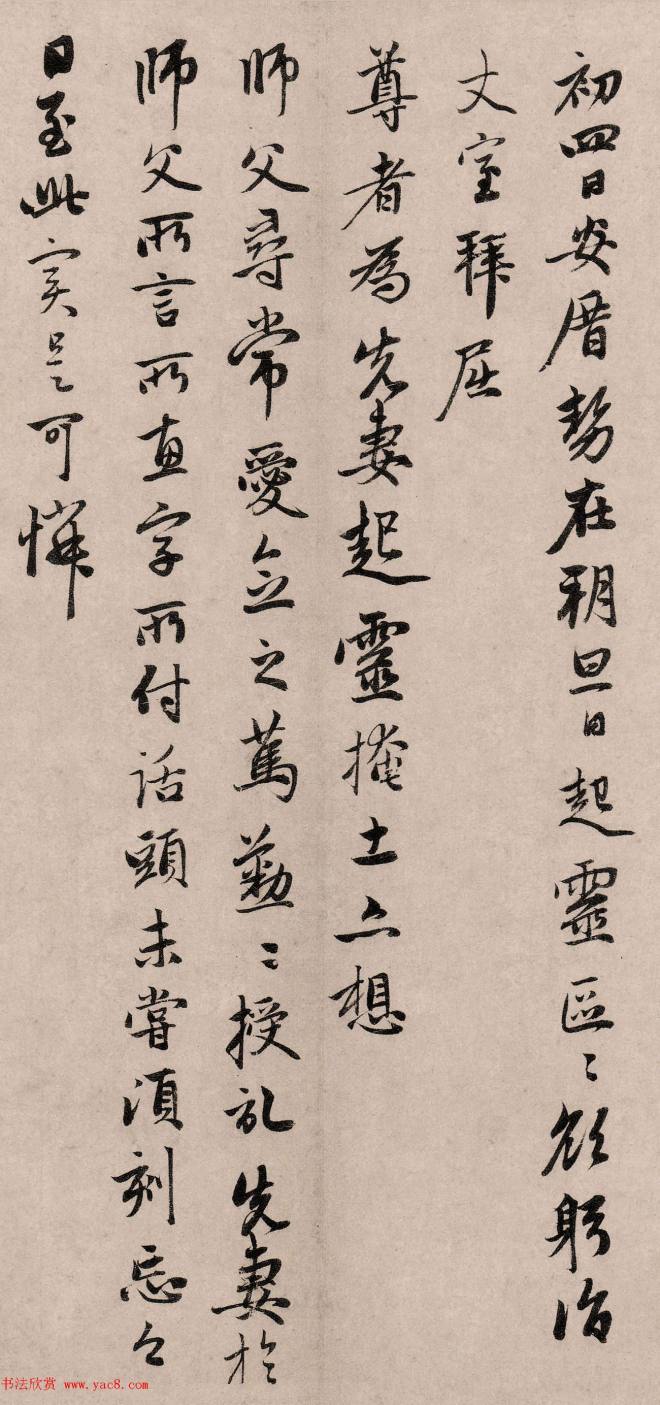 初四日安厝勢在朔旦日起靈區〻欲躬詣
丈室拜屈
尊者為先妻起靈掩土亦想
師父尋常愛念之篤勤〻授記先妻於
師父所言所惠字所付話頭未嘗須刻忘今
日至此實是可憐
书法欣赏 www.yac8.com